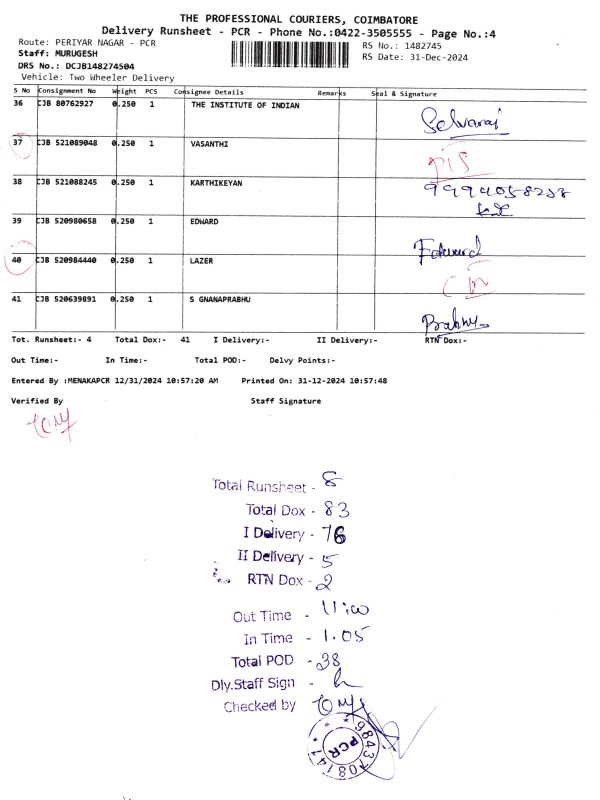 THE PROFESSIONAL COURIERS, COIMBATORE
Delivery Runsheet - PCR - Phone No.:0422-3505555 - Page No.:4
Route: PERIYAR NAGAR - PCR RS No.: 1482745
Staff: MURUGESH RS Date: 31-Dec-2024
DRS No.: DCJB148274504
Vehicle: Two Wheeler Delivery
S No Consignment No Weight PCS Consignee Details Remarks Seal & Signature
36 CJB 80762927 0.250 1 THE INSTITUTE OF INDIAN
Selvaraj
37 CJB 521089048 0.250 1 VASANTHI
38 CJB 521088245 0.250 1 KARTHIKEYAN
39 CJB 520980658 0.250 1 EDWARD
Edward
40 CJB 520984440 0.250 1 LAZER
41 CJB 520639891 0.250 1 S GNANAPRABHU
Prabhu
Tot. Runsheet:- 4 Total Dox:- 41 I Delivery:- II Delivery:- RTN Dox:-
Out Time:- In Time:- Total POD:- Delvy Points:-
Entered By :MENAKAPCR 12/31/2024 10:57:20 AM Printed On: 31-12-2024 10:57:48
Verified By Staff Signature
Total Runsheet - 8
Total Dox - 83
I Delivery - 76
II Delivery - 5
RTN Dox - 2
Out Time - 11:00
In Time - 1.05
Total POD - 38
Dly.Staff Sign -
Checked by
PCR